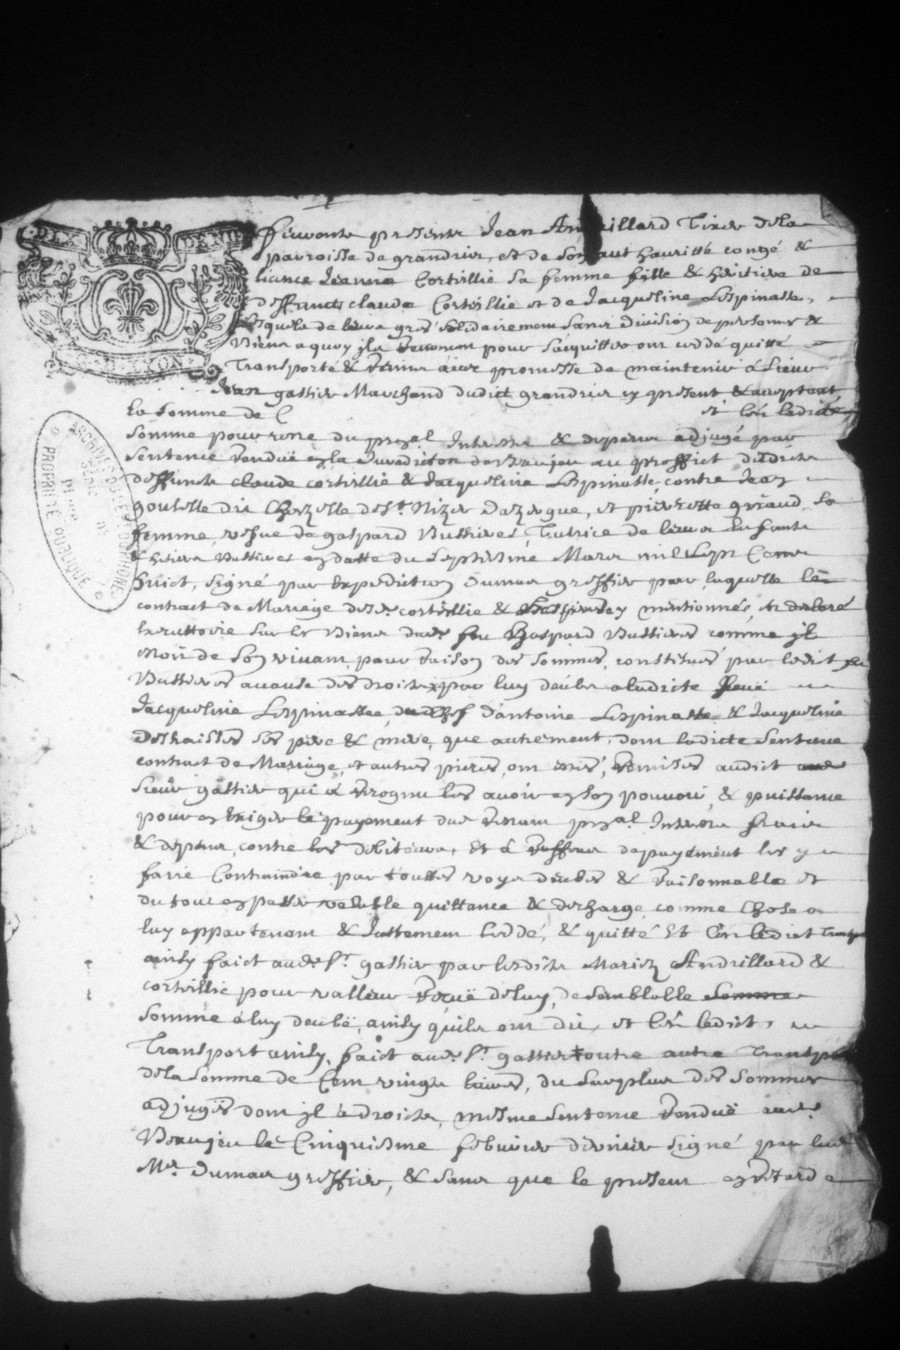 furent presents Jean Andrillard Tixier de la
parroisse de grandris, et de son aut hauritté congé &
licance Jeanne Cortillié sa femme fille & heritiere de
deffuncts claude Cortillie et de Jacqueline Lespinasse,
Lesquels de leurs grés solidairement sans division de personnes &
Biens a quoy jls Renoncent pour s'acquitter ont ceddé quitté
Transporté & Remis avec promesse de maintenir à Sieur
Jean gathier Marchand dudict grandris cy present & acceptant
La Somme de C et c'est ladicte
Somme pour reste du prnal Interestz & despens adjugé par
Sentence Rendue en la Jurediction de Beaujeu au proffict desdicts
deffuncts claude cortillie & Jacqueline Lespinasse, contre Jean
goutelle du Chazelle de St. Nizier dazergue, et pierrette giraud sa
femme, vefve de gaspard Bussieres, Tutrice de leurs Enfants
& hoirs Bussieres en datte du Septiesme Mars mil Sept Cents
huict, Signé par Expedition Dumas greffier par laquelle le
contract de Mariage desds. cortillie & Lespinasse y mentionné, est declaré
Exécuttoire sur les Biens dudt feu Gaspard Bussieres comme jl
estoit de son vivant, pour raison des sommes constituées par ledit feu
Bussieres a cause des droits par luy deubs a ladicte
Jacqueline Lespinasse, du chef d'antoine Lespinasse & Jacqueline
Deshaisles ses pere & mere, que autrement, dont ladicte Sentence
contract de Mariage, et autres pieces, ont estés, Remises audict
Sieur gathier qui a Recognu les avoir en son pouvoir, & puissance
pour en Exiger le payement dud Restant prnal Interestz fraix
& despens, contre les debiteurs, Et à Reffus de payement les y
faire Contraindre par touttes voyes deubes & Raisonnable et
du tout en passer valable quittance & descharge, comme Chose a
luy appartenant & Justement ceddé, & quitté Et c'est ledict Transport
ainsy faict aud. Sr. gathier par lesdicts Mariez Andrillard &
cortillie pour valleur Reçuë de luy, de semblable Somme
Somme à luy deubë, ainsy qu'ils ont dit, et c'est ledict,
Transport ainsy, faict aud. Sr. gathier outre autre Transport
de la Somme de Cent vingts livres, du Surplus des Sommes
adjugées dont jl a droicts, mesme Sentence Renduë aud.
Beaujeu le Cinquiesme febvrier dernier Signé par led
Me. Dumas greffier, & sans que le present retarde
ARCHIVES DU DÉPARTEMENT DU RHÔNE
PROPRIÉTÉ PUBLIQUE